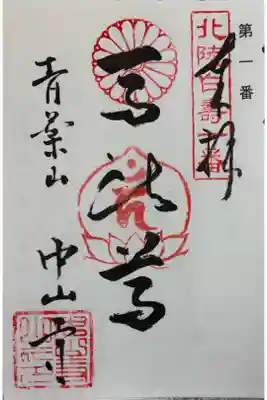 第一番
奉拝
北陸白寿一番
馬头尊
青葉山
中山寺